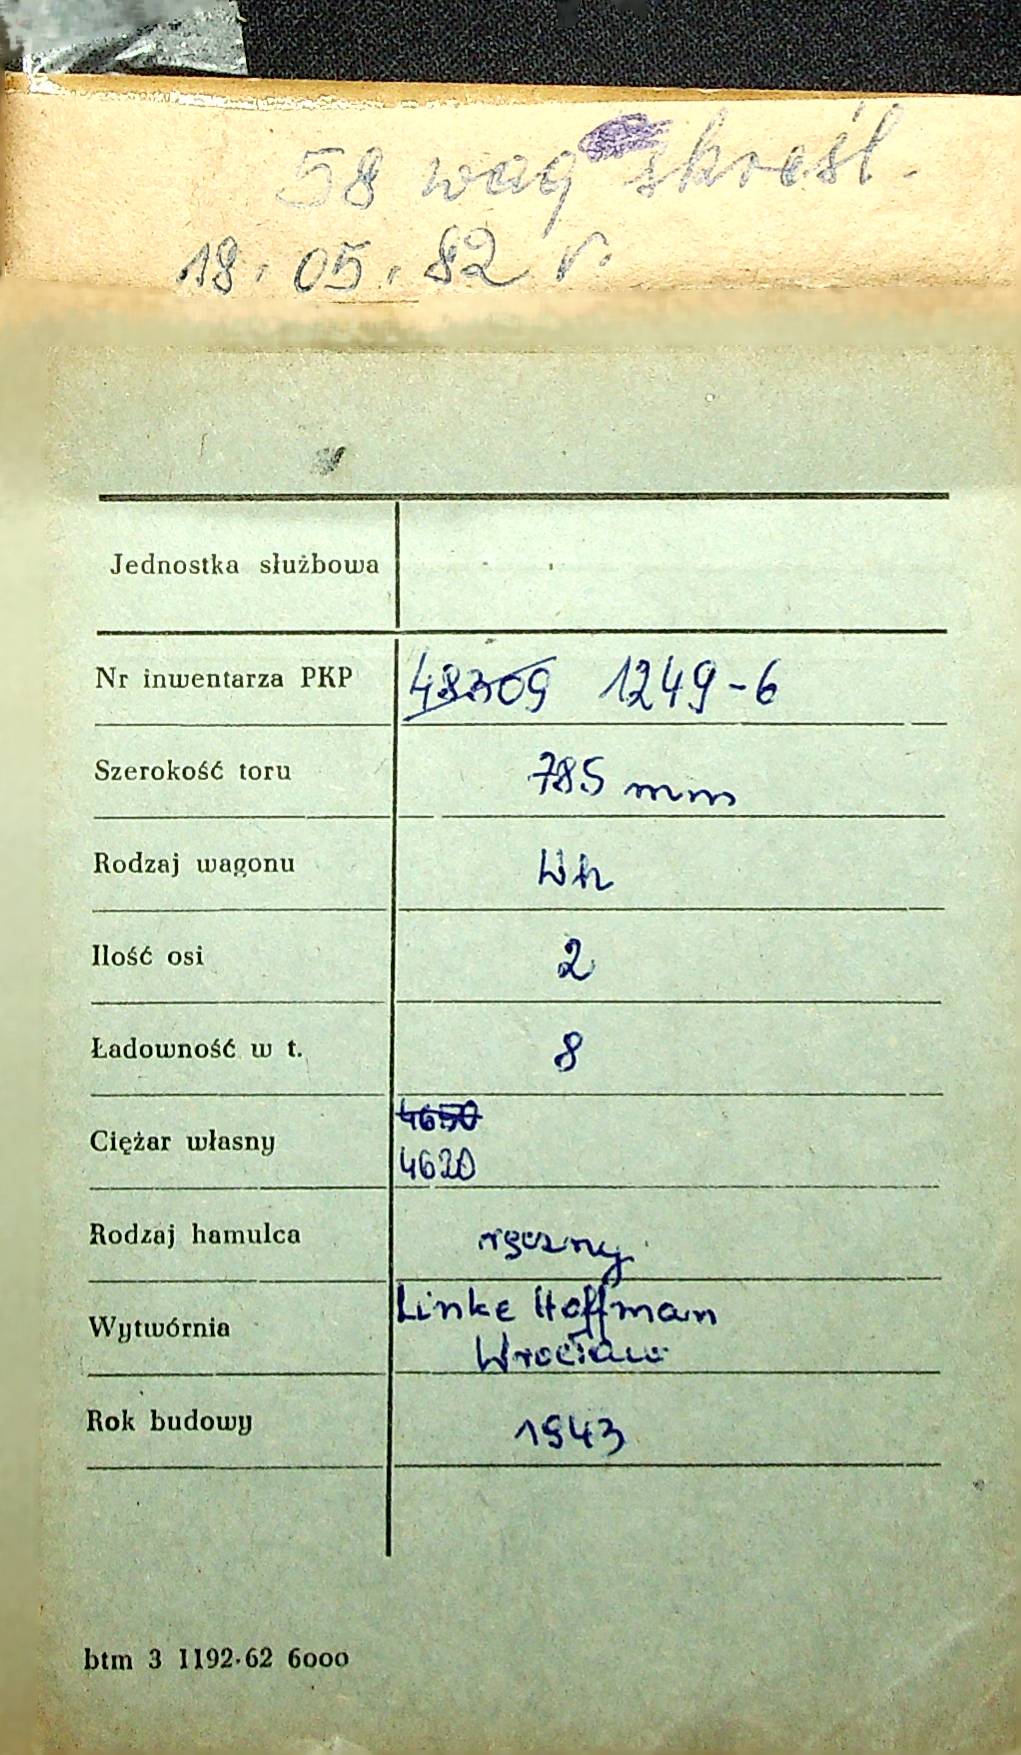 58 wag skreśl.
18.05.82 r.
Jednostka służbowa
Nr inwentarza PKP 48309 1249-6
Szerokość toru 785 mm
Rodzaj wagonu Wh
Ilość osi 2
Ładowność w t. 8
Ciężar własny 4650
4620
Rodzaj hamulca ręczny
Wytwórnia Linke Hoffman
Wrocław
Rok budowy 1943
btm 3 1192·62 6000